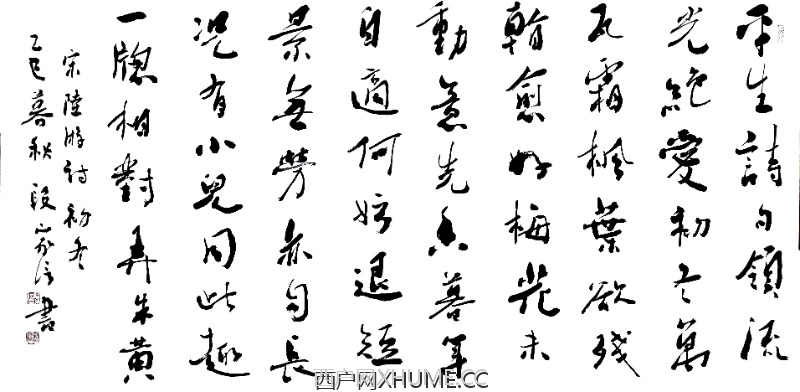 平生詩句領流
光絶愛初冬萬
瓦霜楓葉欲殘
看愈好梅花未
動意先香暮年
自適何妨退短
景無勞亦自長
況有小兒同此趣
一牕相對弄朱黄
宋陸游詩初冬
乙巳暮秋 段家信書
西户网XHUME.CC